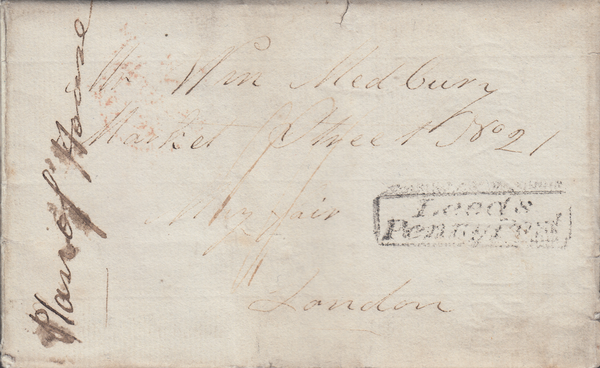 Mr Wm Medbury
Market Street No 21
May fair
London
Leeds
Penny Post
Plan of House